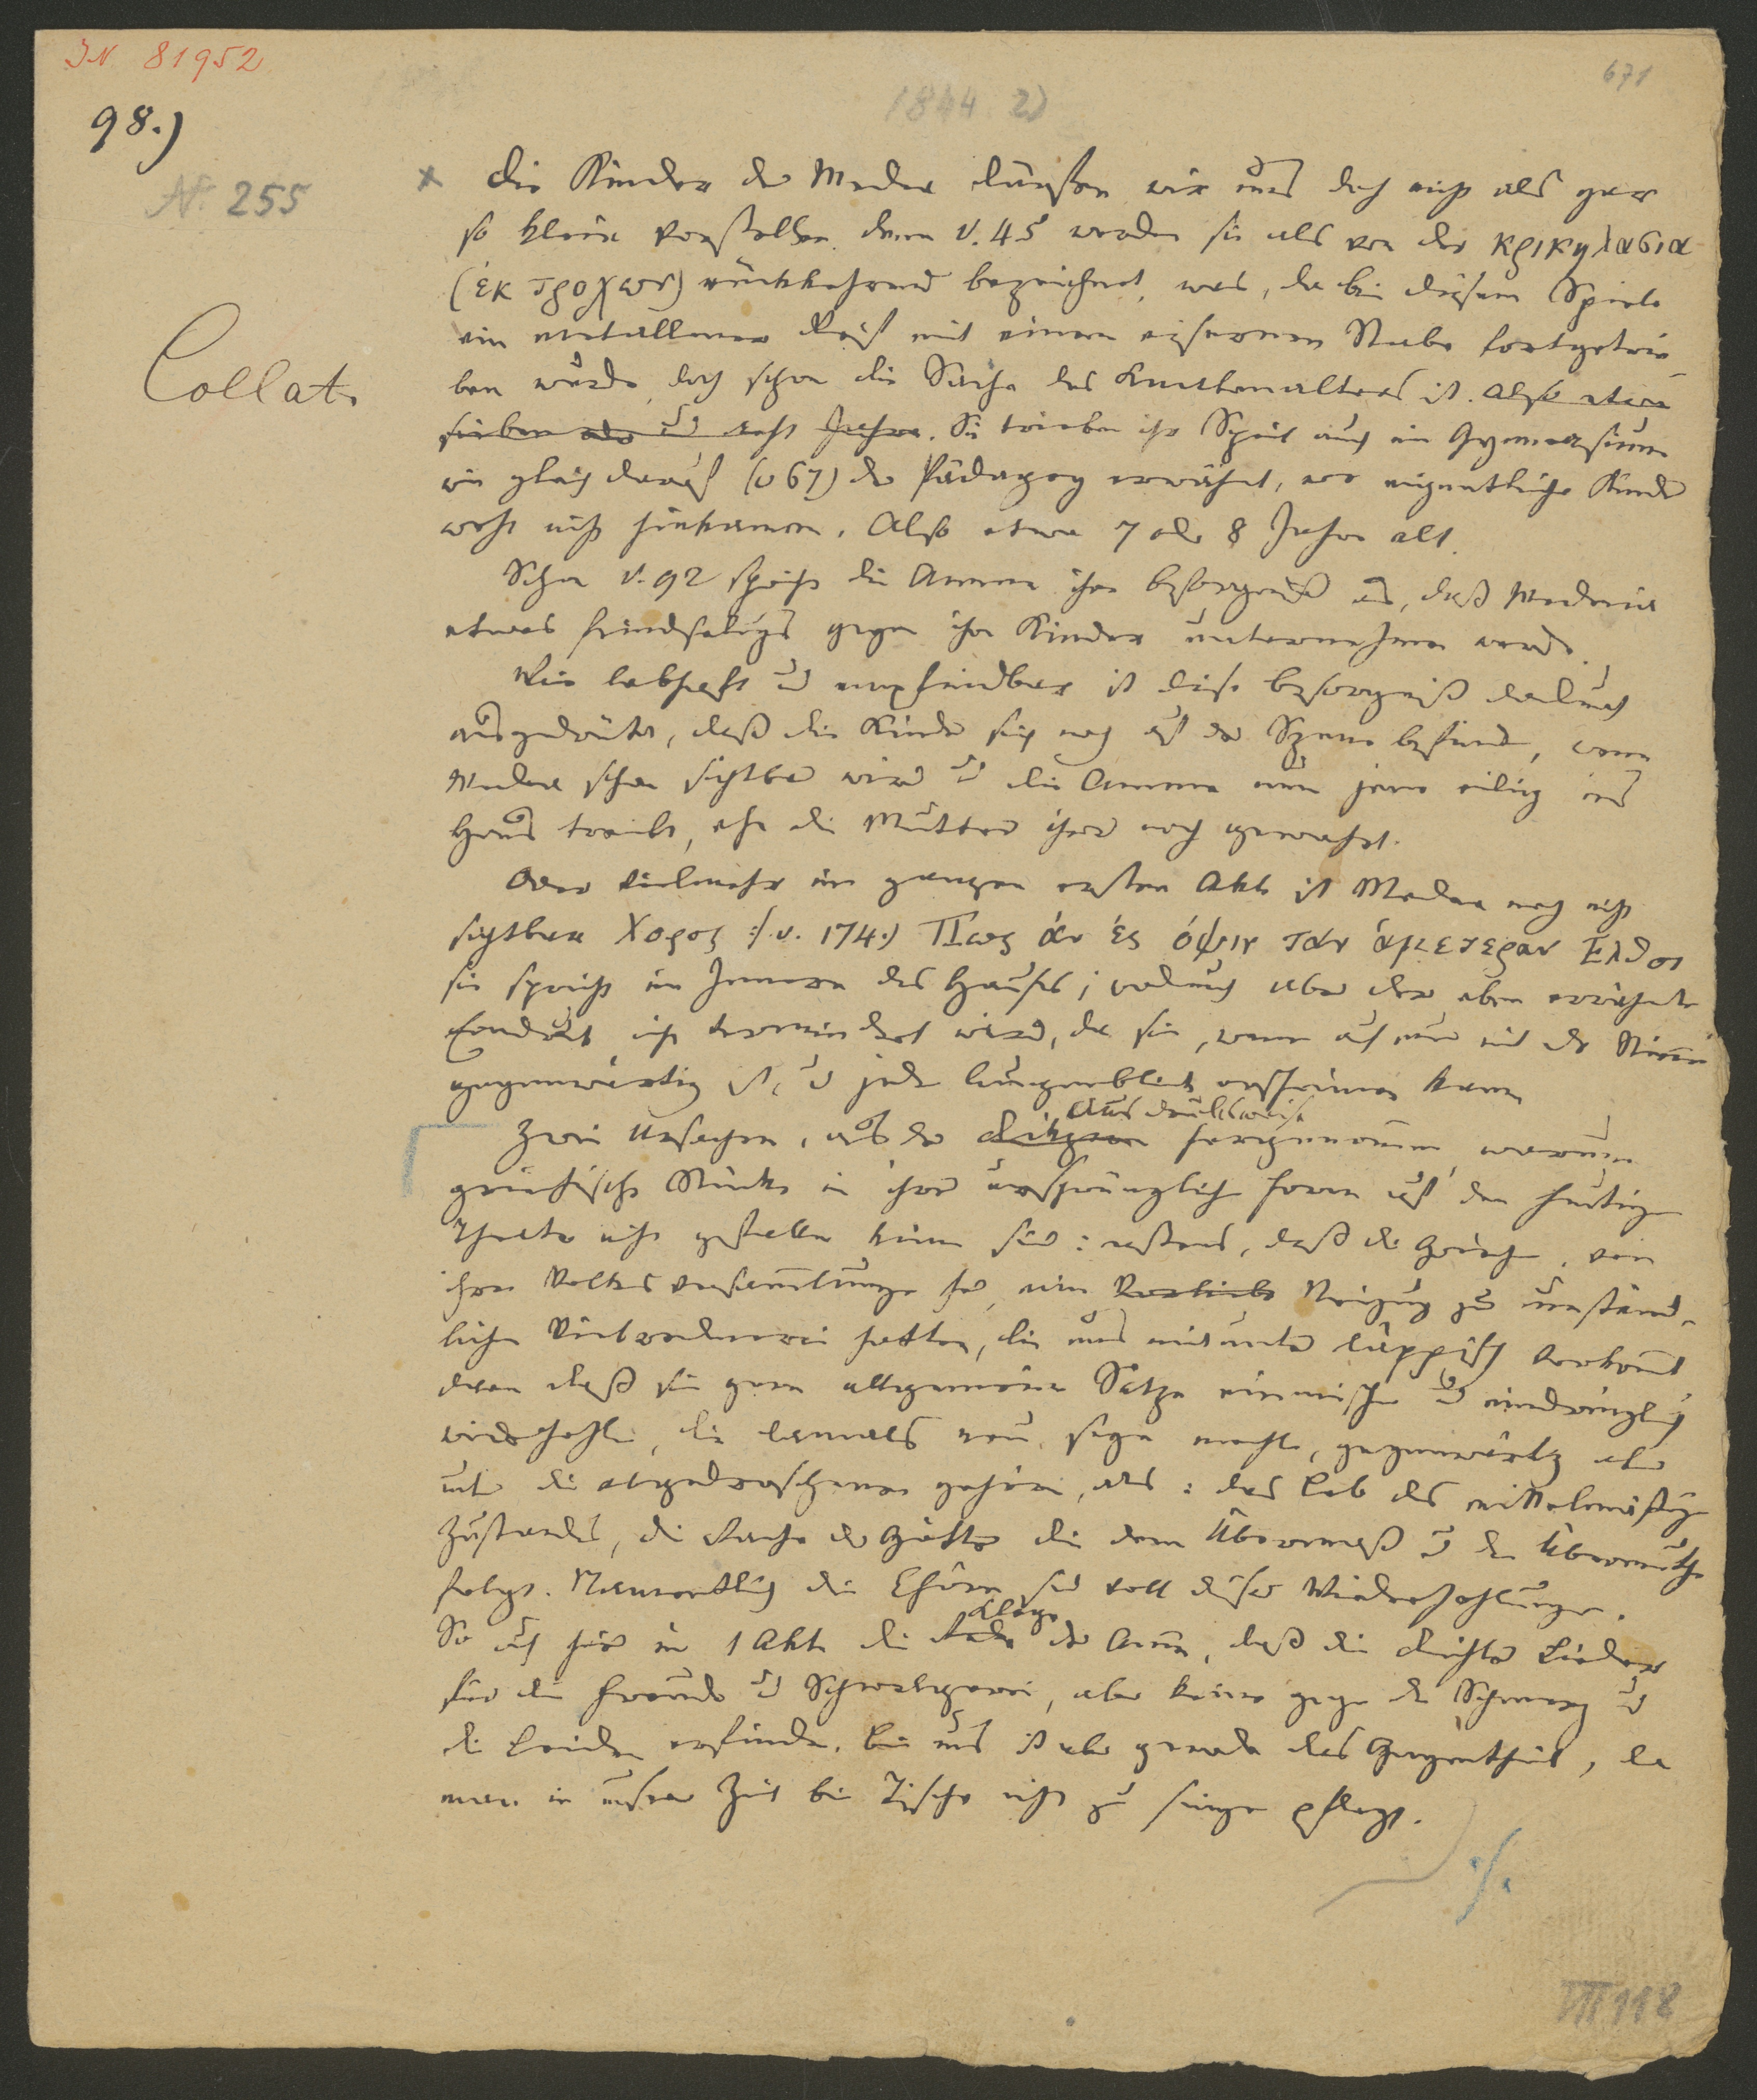 IN 81952
671
1844 2)
98.)
N. 255
Collat.
x Die Kinder der Medea dürfen wir uns doch nicht als gar
so klein vorstellen, denn V. 45 werden sie als von der κρικηλασια
(ἐκ τροχων) rückkehrend bezeichnet, was, da bei diesem Spiele
ein metallner Reif mit einem eisernen Stabe fortgetrie-
ben wurde, doch schon die Sache des Knabenalters ist. Also etwa
sieben oder acht Jahre. Sie trieben ihr Spiel auch im Gymnasium
wie gleich darauf (v 67) der Pädagog erwähnt, wo eigentliche Kinder
wohl nicht hinkamen. Also etwa 7 oder 8 Jahre alt.
Schon V. 92 spricht die Amme ihre Besorgniß aus, daß Medeia
etwas feindseliges gegen ihre Kinder unternehmen werde.
Wie lebhaft und empfindbar ist diese Besorgniß dadurch
ausgedrückt, daß die Kinder sich noch auf der Szene befinden, wenn
Medea schon sichtbar wird und die Amme nun jene eilig ins
Haus treibt, ehe die Mutter ihrer noch gewahrt.
Oder vielmehr im ganzen ersten Akt ist Medea noch nicht
sichtbar Χορος :/ v. 174.) Πως ἀν ἐς ὀψιν τὰν ἁμετεραν Ελθοι
sie spricht im Innern des Hauses; wodurch aber der eben erwähnte
Eindruck nicht vermindert wird, da sie, wenn auch nur mit der Stimme
gegenwärtig ist, und jeden Augenblick erscheinen kann
Zwei Ursachen, aus der Diktion hergenommen, warum
Ausdrucksweise
griechische Stücke in ihrer ursprünglichen Form auf den heutigen
Theater nicht gefallen können sind: erstens, daß die Griechen, von
ihren Volksversammlungen her, eine Vorliebe Neigung zu umständ-
licher Vielrednerei hatten, die uns mitunter läppisch vorkommt
dann daß sie gern allgemeine Sätze einmischen und eindringlich
wiederhohlen, die damals neu sein mochten, gegenwärtig aber
unter die abgedroschenen gehören, als: das Lob des mittelmäßigen
Zustandes, die Rache der Götter die dem Übermaß und dem Übermuthe
folgt. Namentlich die Chöre sind voll dieser Wiederhohlungen.
So auch hier im 1 Akte die Rede der Amme, daß die Dichter Lieder
Klage
für die Freude und Schwelgerei, aber keine gegen den Schmerz und
die Leiden erfinden. Bei uns ist aber gerade das Gegentheil, da
man in unserer Zeit bei Tische nicht zu singen pflegt.
./.
VII 118